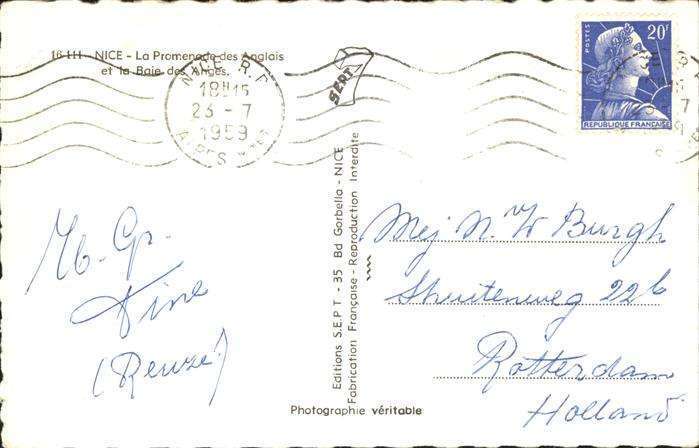 16-111 - NICE - La Promenade des Anglais
et la Baie des Anges.
NICE R.P.
18H15
23-7
1959
ALPES
SEPT
POSTES
20F
REPUBLIQUE FRANÇAISE
H. Gr.
Tine
Mej N. v. W Burgh
22b
Rotterdam
Holland
Editions S.E.P.T - 35 Bd Gorbella - NICE
Fabrication Française - Reproduction Interdite
Photographie véritable